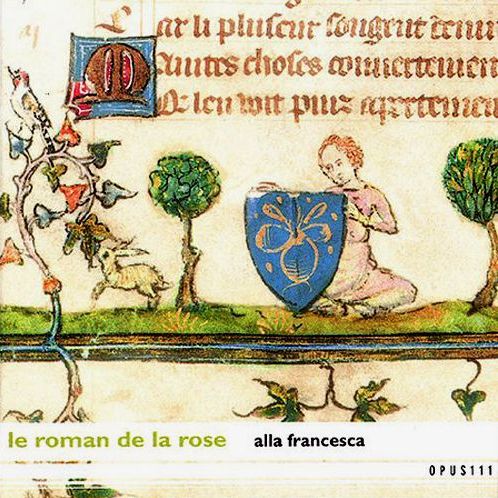 Car li pluseur songent de nui
Maintes choses couuertemen
Qe len uoit puis apertemen
le roman de la rose alla francesca
OPUS111